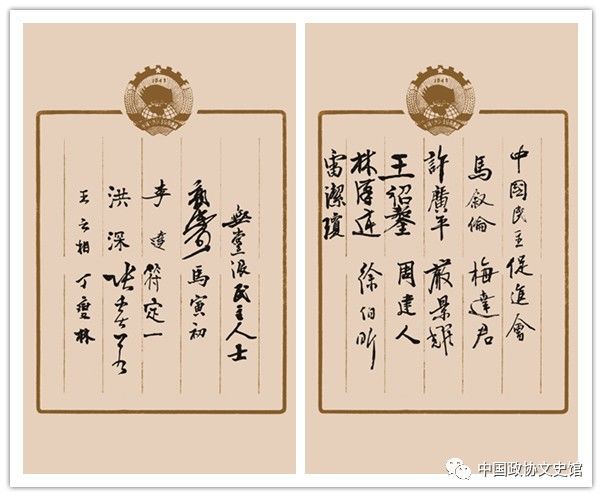 中國民主促進會
馬叙倫 梅達君
許廣平 嚴景耀
王绍鏊 周建人
林漢達 徐伯昕
雷潔瓊
無黨派民主人士
馬寅初
李達 符定一
洪深 張奚若
王之相 丁燮林
1949
中国政协文史馆